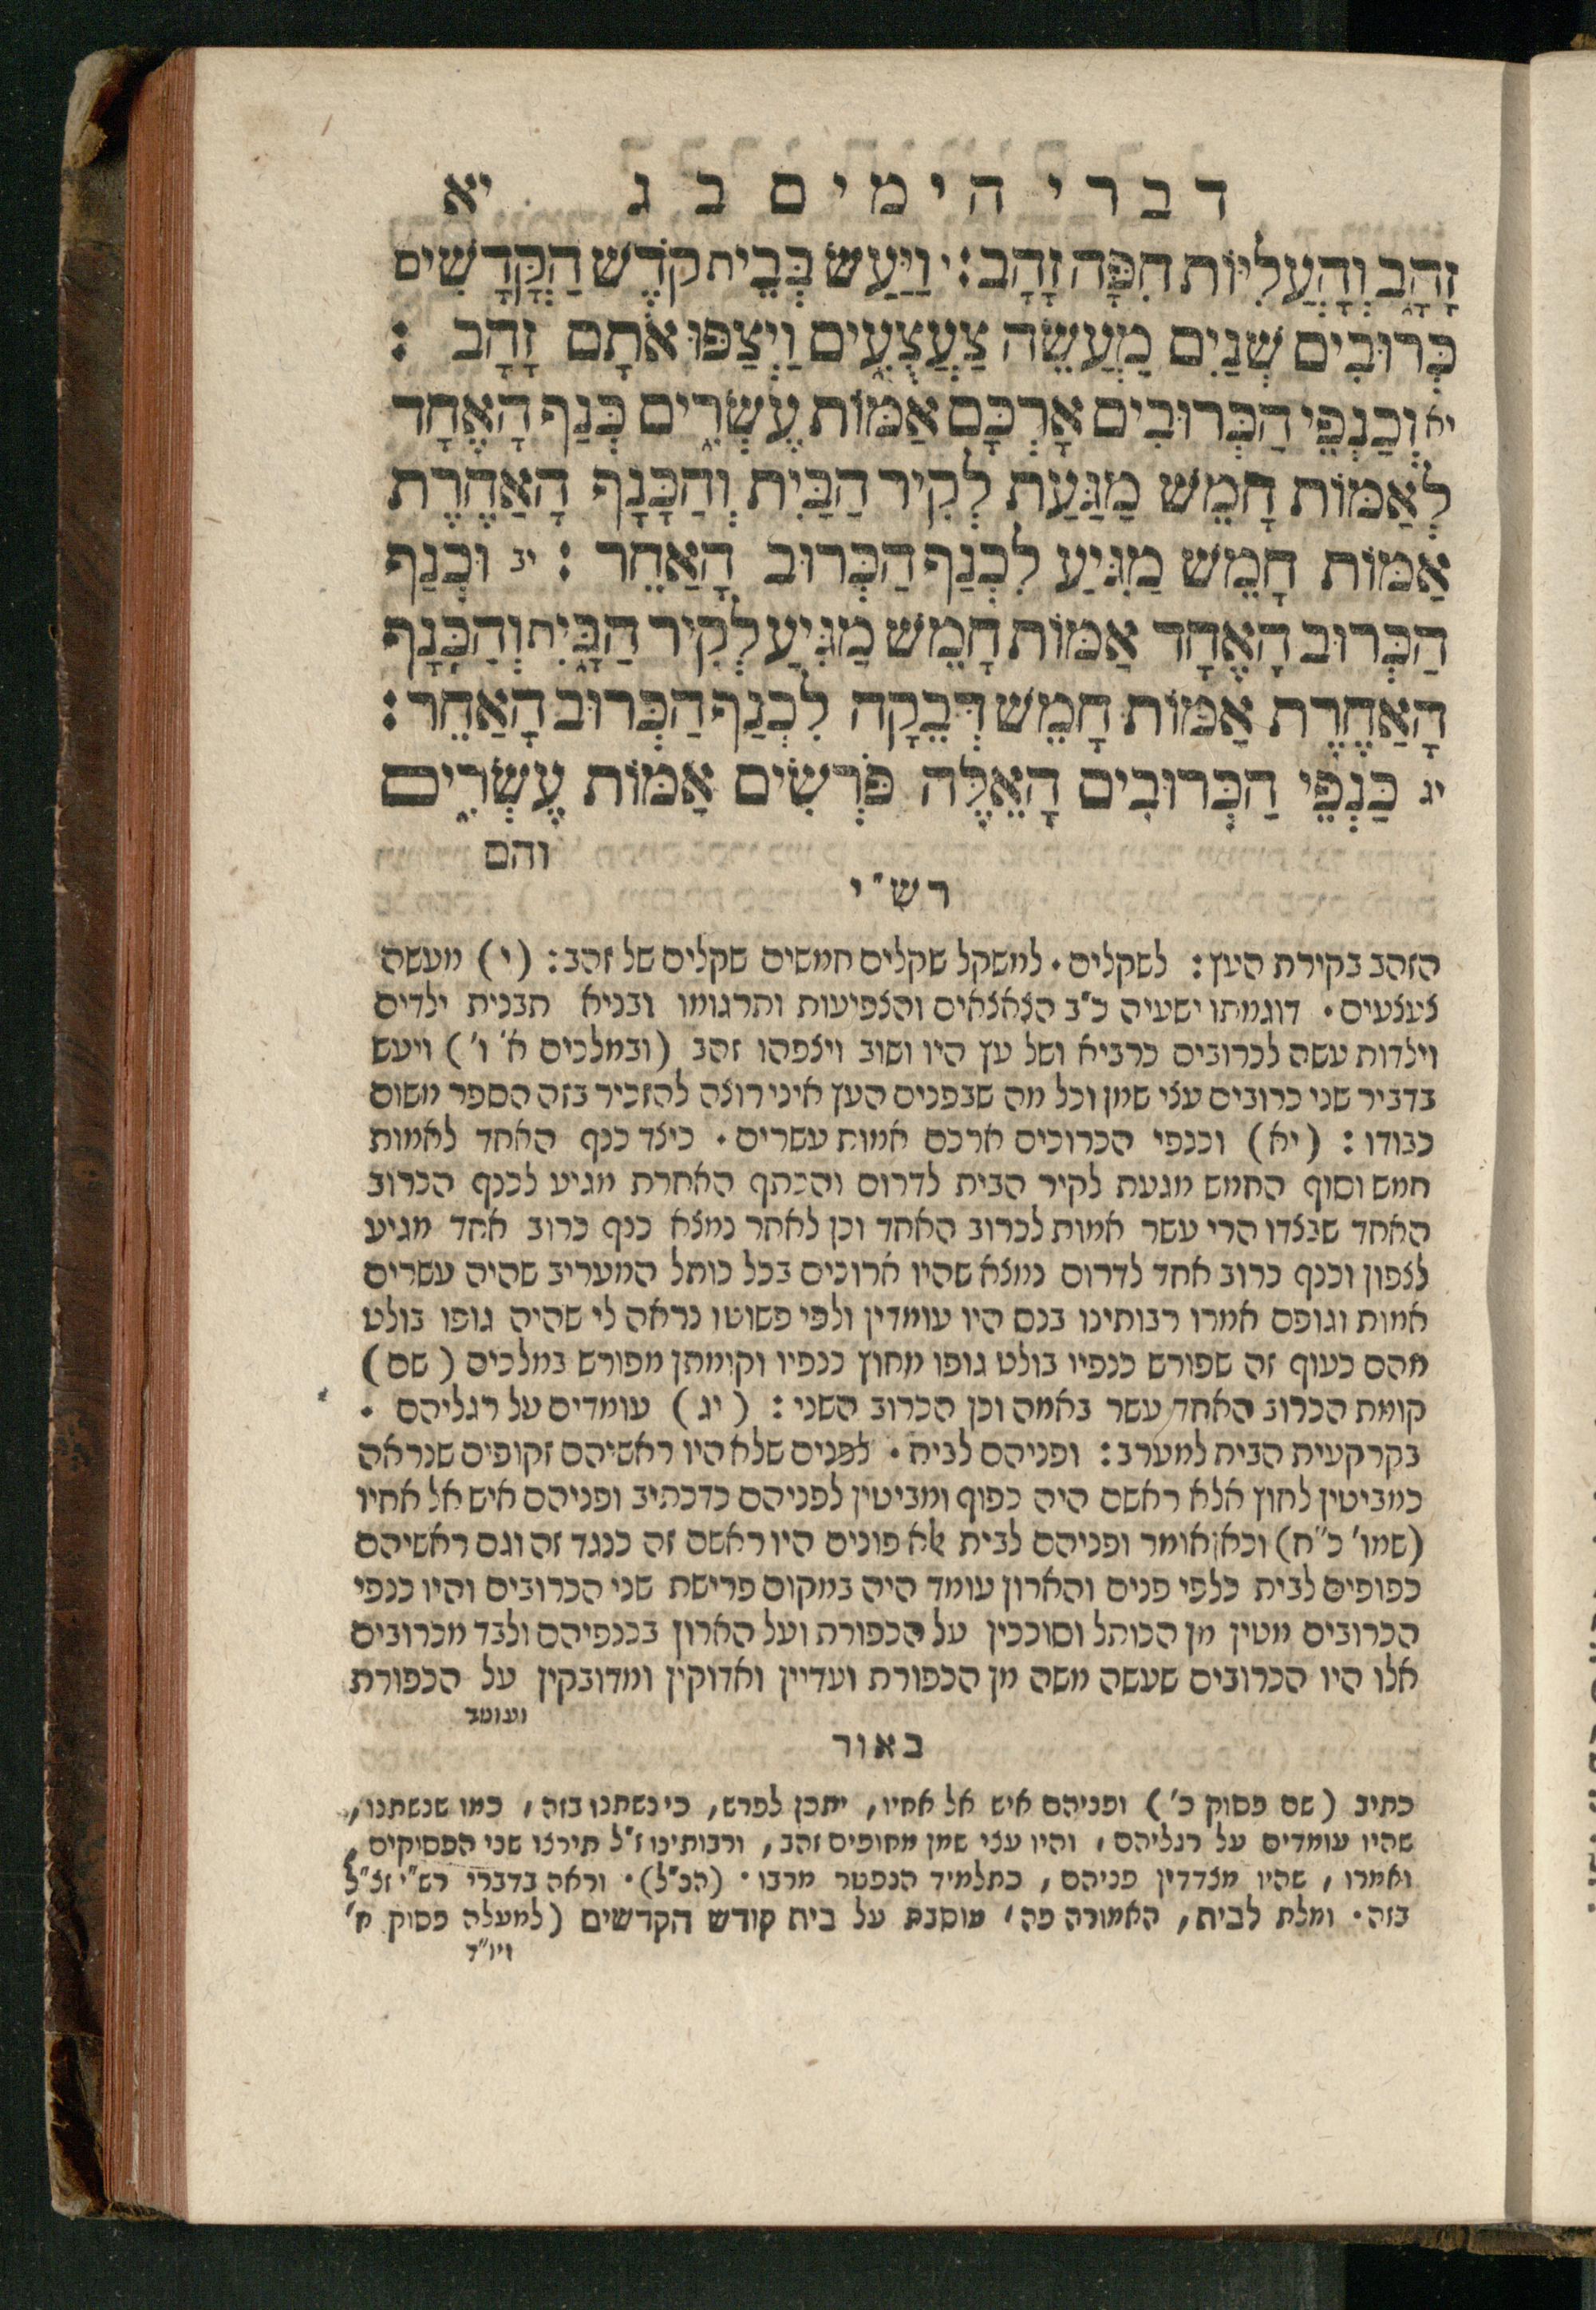 דברי הימים ב ג יא
זָהָב וְהָעֲלִיּוֹת חִפָּה זָהָב : י וַיַּעַשׂ בְּבֵית קֹדֶשׁ הַקֳּדָשִׁים
כְּרוּבִים שְׁנַיִם מַעֲשֵׂה צַעֲצֻעִים וַיְצַפּוּ אֹתָם זָהָב :
יא וְכַנְפֵי הַכְּרוּבִים אָרְכָּם אַמּוֹת עֶשְׂרִים כְּנַף הָאֶחָד
לְאַמּוֹת חָמֵשׁ מַגַּעַת לְקִיר הַבַּיִת וְהַכָּנָף הָאַחֶרֶת
אַמּוֹת חָמֵשׁ מַגִּיעַ לִכְנַף הַכְּרוּב הָאַחֵר : יב וּכְנַף
הַכְּרוּב הָאֶחָד אַמּוֹת חָמֵשׁ מַגִּיעַ לְקִיר הַבָּיִת וְהַכָּנָף
הָאַחֶרֶת אַמּוֹת חָמֵשׁ דְּבֵקָה לִכְנַף הַכְּרוּב הָאַחֵר :
יג כַּנְפֵי הַכְּרוּבִים הָאֵלֶּה פֹּרְשִׂים אַמּוֹת עֶשְׂרִים
והם
רש״י
הזהב בקירת העץ : לשקלים . למשקל שקלים חמשים שקלים של זהב : (י) מעשה
צעצעים . דוגמתו ישעיה כ״ב הצאצאים והצפיעות ותרגומו ובניא תבנית ילדים
וילדות עשה לכרובים כרביא ושל עץ היו ושוב ויצפהו זהב (ובמלכים א׳ ו׳) ויעש
בדביר שני כרובים עצי שמן וכל מה שבפנים העץ איני רוצה להזכיר בזה הספר משום
כבודו : (יא) וכנפי הכרובים ארכם אמות עשרים . כיצד כנף האחד לאמות
חמש וסוף החמש מגעת לקיר הבית לדרום והכתף האחרת מגיע לכנף הכרוב
האחד שבצדו הרי עשר אמות לכרוב האחד וכן לאחר נמצא כנף כרוב אחד מגיע
לצפון וכנף כרוב אחד לדרום נמצא שהיו ארוכים בכל כותל המעריב שהיה עשרים
אמות וגופם אמרו רבותינו בנס היו עומדין ולפי פשוטו נראה לי שהיה גופו בולט
מהם כעוף זה שפורש כנפיו בולט גופו מחוץ כנפיו וקומתן מפורש במלכים (שם)
קומת הכרוב האחד עשר באמה וכן הכרוב השני : (יג) עומדים על רגליהם .
בקרקעית הבית למערב : ופניהם לבית . לפנים שלא היו ראשיהם זקופים שנראה
כמביטין לחוץ אלא ראשם היה כפוף ומביטין לפניהם כדכתיב ופניהם איש אל אחיו
(שמו׳ כ״ח) וכאן אומר ופניהם לבית אלא פונים היו ראשם זה כנגד זה וגם ראשיהם
כפופים לבית כלפי פנים והארון עומד היה במקום פרישת שני הכרובים והיו כנפי
הכרובים מטין מן הכותל וסוככין על הכפורת ועל הארון בכנפיהם ולבד מכרובים
אלו היו הכרובים שעשה משה מן הכפורת ועדיין ואדוקין ומדובקין על הכפורת
ועומב
באור
כתיב (שם פסוק כ׳) ופניהם איש אל אחיו, יתכן לפרש, כי נשתנו בזה, כמו שנשתנו,
שהיו עומדים על רגליהם, והיו עצי שמן מחופים זהב, ורבותינו ז״ל תירצו שני הפסוקים,
ואמרו, שהיו מצדדין פניהם, כתלמיד הנפטר מרבו . (הכ״ל) . וראה בדברי רש״י זצ״ל
בזה . ומלת לבית, האמורה פה, מוסבת על בית קודש הקדשים (למעלה פסוק ח׳
ויו״ד